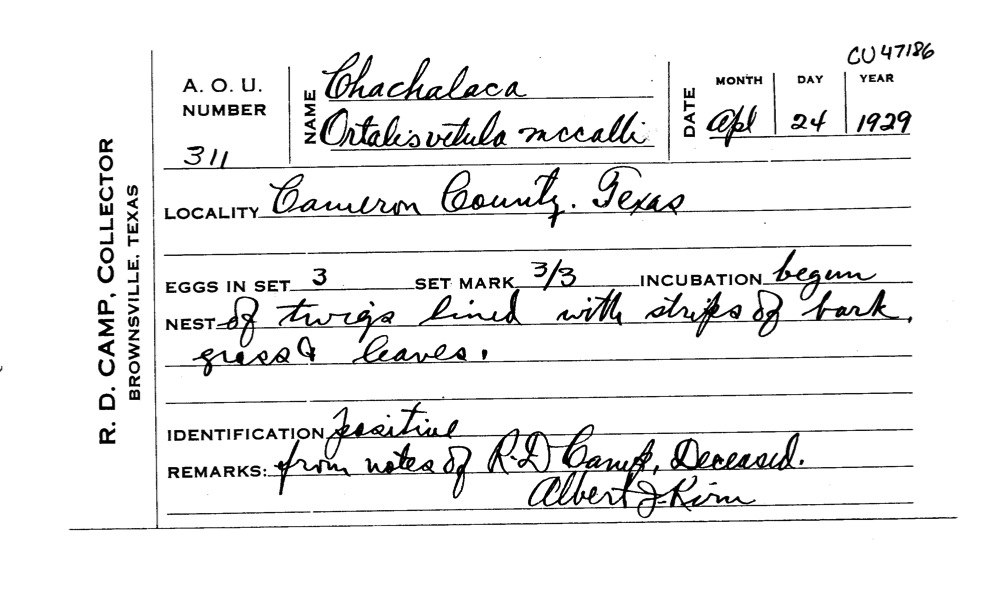 CU 47186
R. D. CAMP, COLLECTOR
BROWNSVILLE, TEXAS
A. O. U. NUMBER 311
NAME Chachalaca
Ortalis vetula mccalli
DATE MONTH DAY YEAR
Apl 24 1929
LOCALITY Cameron County. Texas
EGGS IN SET 3 SET MARK 3/3 INCUBATION begun
NEST of twigs lined with strips of bark,
grass & leaves.
IDENTIFICATION positive
REMARKS: from notes of R.D Camp, Deceased.
Albert J. Kirn